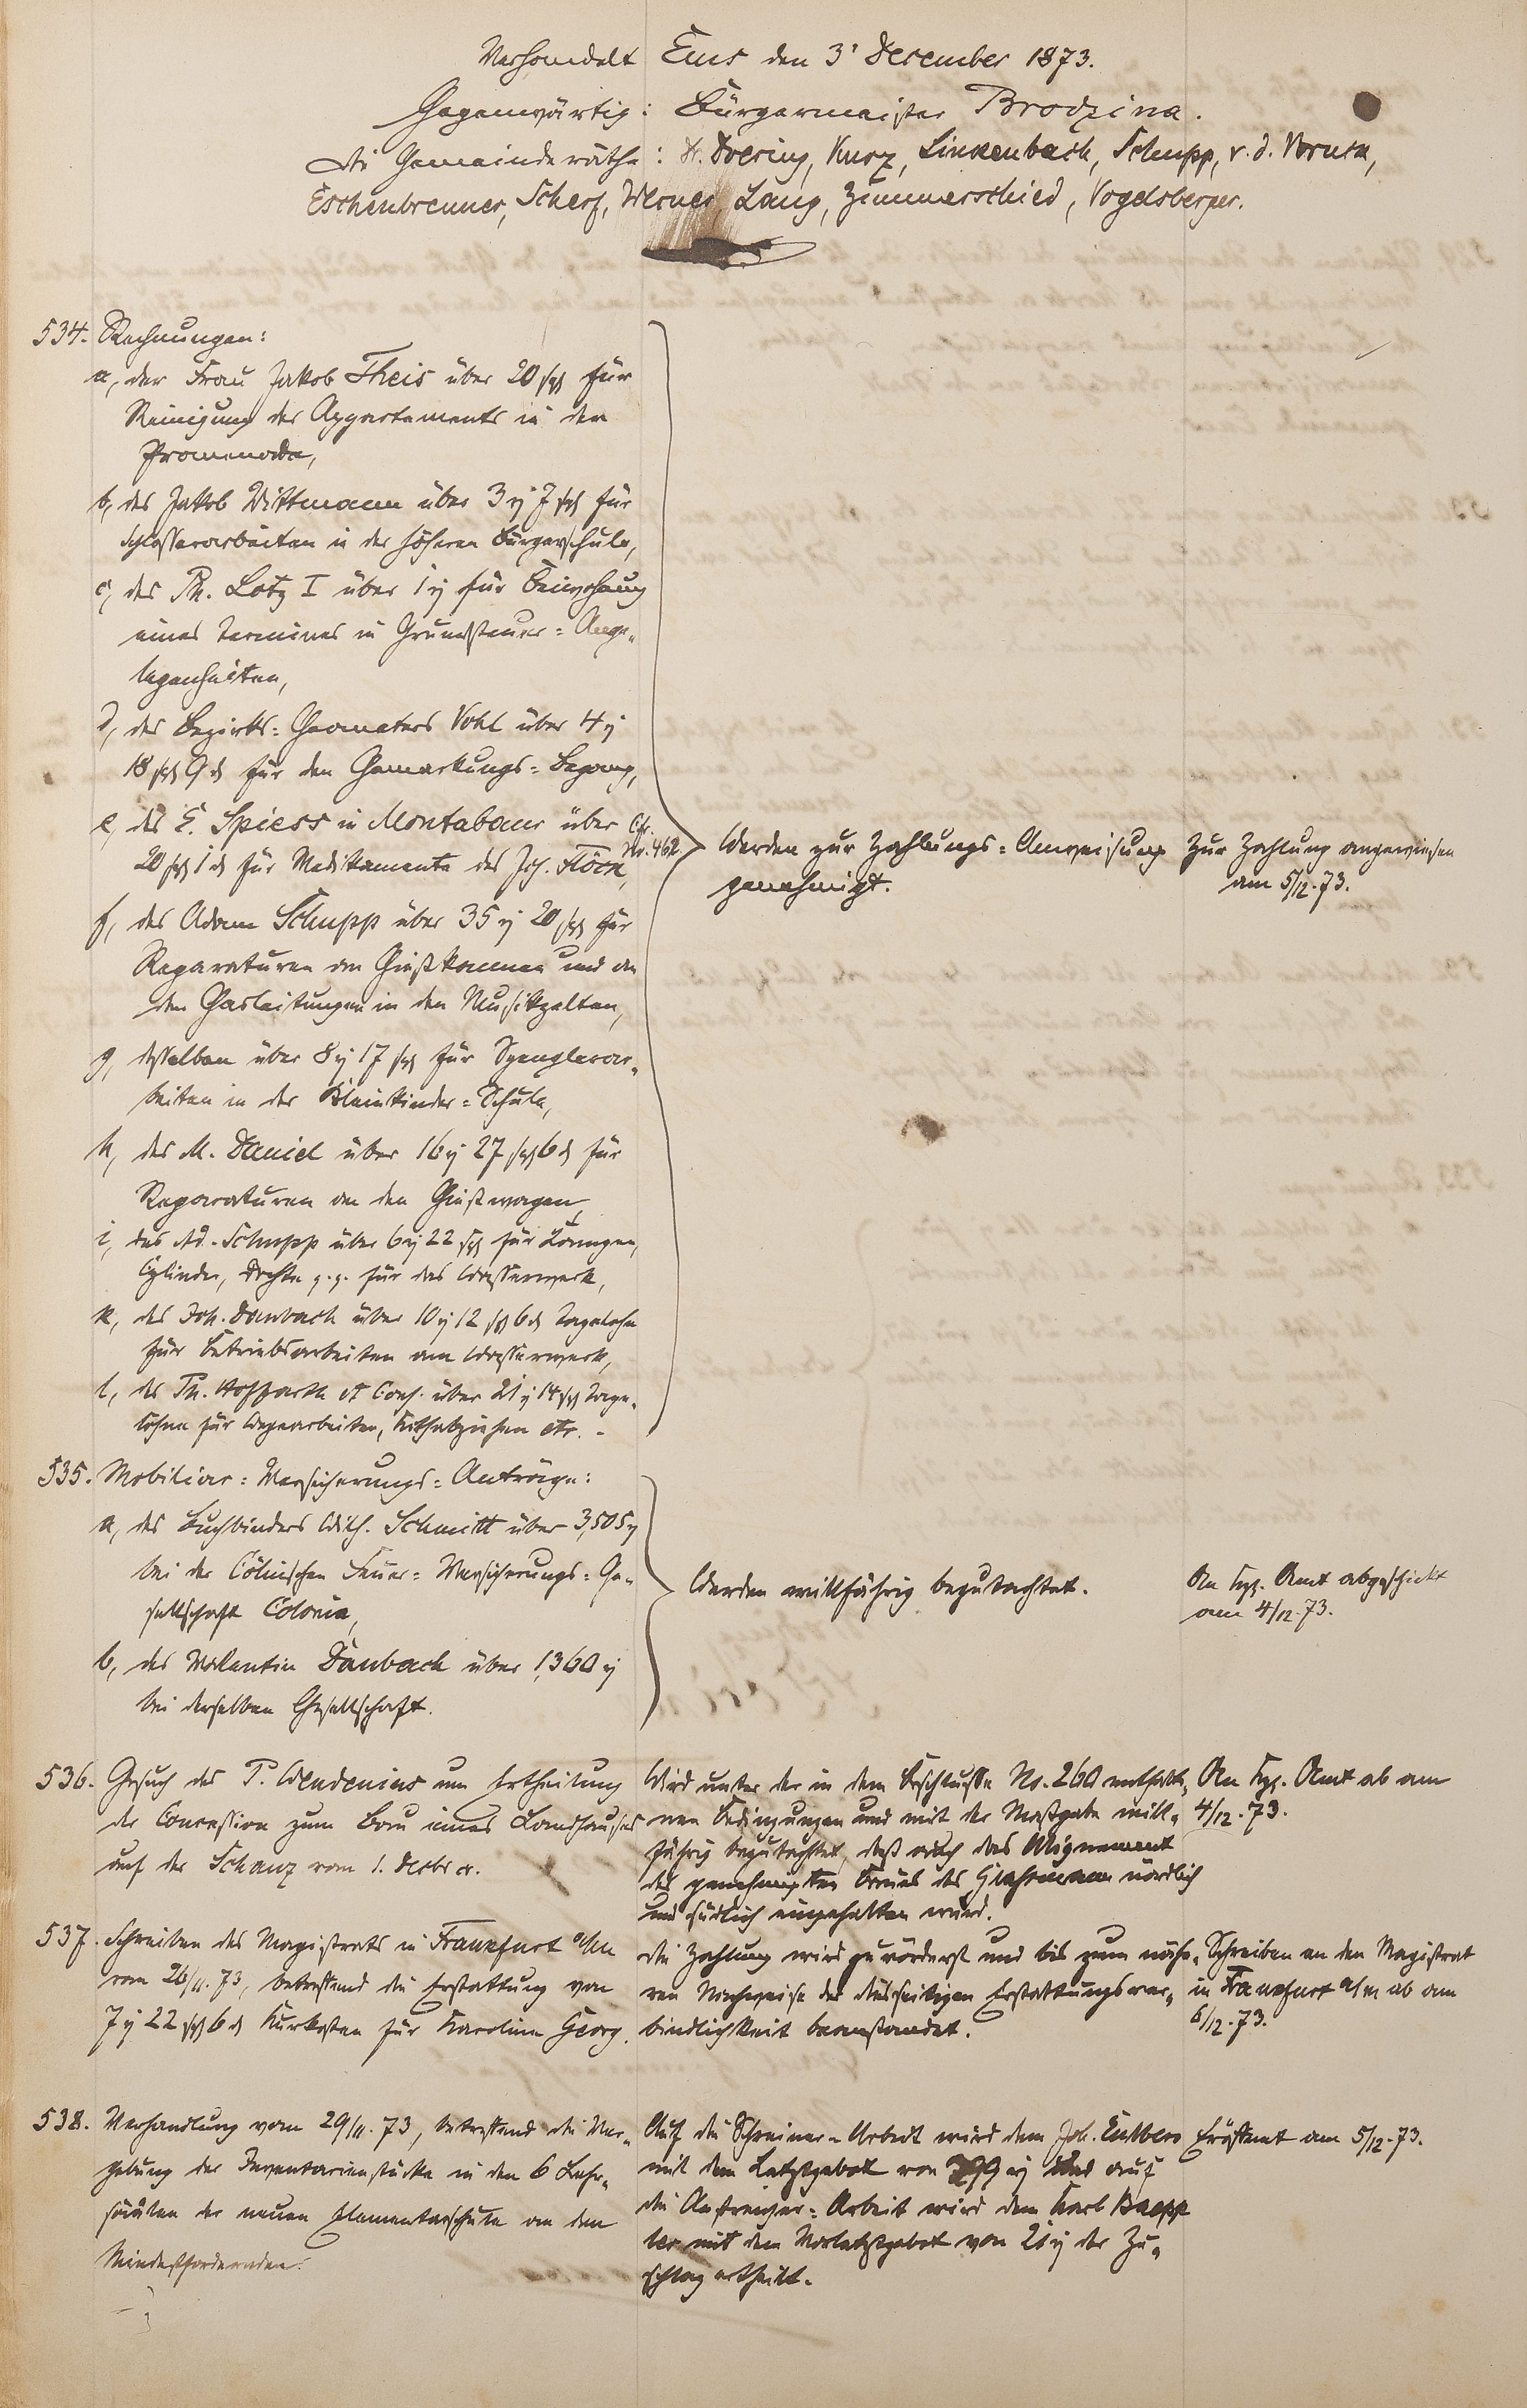 Verhandelt Ems den 3' December 1873.
Gegenwärtig: Bürgermeister Brodzina.
Die Gemeinderäthe: Dr. Doering, Kurz, Linkenbach, Schupp, v. d.
Eschenbrenner, Scherf, Werner, Lang, Zimmerschied, Vogelsberger.
534. Rechnungen:
a, der Frau Jakob Theis über 20 sgr für
Reinigung des Appartements in der
Promenade,
b, des Jakob Wittmann über 3 rl 7 sgr für
Schlosserarbeiten in der höheren Bürgerschule,
c, des Ph. Lotz I über 1 rl für Beiwohnung
eines Termines in Grundsteuer=Ange„
legenheiten,
d, des Bezirks=Geometers Vohl über 4 rl
18 sgr 9 d für den Gemarkungs=Begang,
e, des E. Spiess in Montabaur über Cfr.
20 sgr 1 d für Medikamente des Joh. Flöck, No. 462
f, des Adam Schupp über 35 rl 20 sgr für
Reparaturen an Gießkannen und an
den Gasleitungen in den Musikzelten,
g, desselben über 8 rl 17 sgr für Spenglerar„
beiten in der Kleinkinder=Schule,
h, des M. Daniel über 16 rl 27 sgr 6 d für
Reparaturen an den Gießwagen,
i, des Ad. Schupp über 6 rl 22 sgr für Lampen,
Cylinder, Dochte p.p. für das Wasserwerk,
k, des Joh. Danbach über 10 rl 12 sgr 6 d Tagelohn
für Betriebsarbeiten am Wasserwerk,
l, des Ph. Hoffarth et Cons. über 21 rl 14 sgr Tage„
löhne für Wegearbeiten, Kothabziehen etc. -
Werden zur Zahlungs=Anweisung
genehmigt.
Zur Zahlung angewiesen
am 5/12. 73.
535. Mobiliar=Versicherungs=Anträge:
a, des Buchbinders Wilh. Schmitt über 3,505 rl
bei der Cölnischen Feuer=Versicherungs=Ge„
sellschaft Colonia,
b, des Valentin Danbach über 1,360 rl
bei derselben Gesellschaft.
Werden willfährig begutachtet.
An Kgl. Amt abgeschickt
am 4/12. 73.
536. Gesuch des P. Wendenius um Ertheilung
der Concession zum Bau eines Landhauses
auf der Schanz vom 1. Decbr. cr.
Wird unter den in dem Beschlusse No. 260 enthalte„
nen Bedingungen und mit der Maßgabe will„
fährig begutachtet, daß auch das Alignement
des genehmigten Baues des Glasmann nördlich
und südlich eingehalten wird.
An Kgl. Amt ab am
4/12. 73.
537. Schreiben des Magistrats in Frankfurt a/m
vom 26/11. 73, betreffend die Erstattung von
7 rl 22 sgr 6 d Kurkosten für Karoline Georg.
Die Zahlung wird zuvörderst und bis zum nähe„
ren Nachweise der diesseitigen Erstattungsver„
bindlichkeit beanstandet.
Schreiben an den Magistrat
in Frankfurt a/m ab am
6/12. 73.
538. Verhandlung vom 29/11. 73, betreffend die Ver„
gebung der Inventarienstücke in den 6 Lehr„
sälen der neuen Elementarschule an den
Mindestfordernden.
Auf die Schreiner=Arbeit wird dem Joh.
mit dem Letztgebot von rl und auf
die Anstreicher=Arbeit wird dem Karl Kaepp
ler mit dem Vorletztgebot von 21 rl der Zu„
schlag ertheilt.
Eröffnet am 5/12. 73.